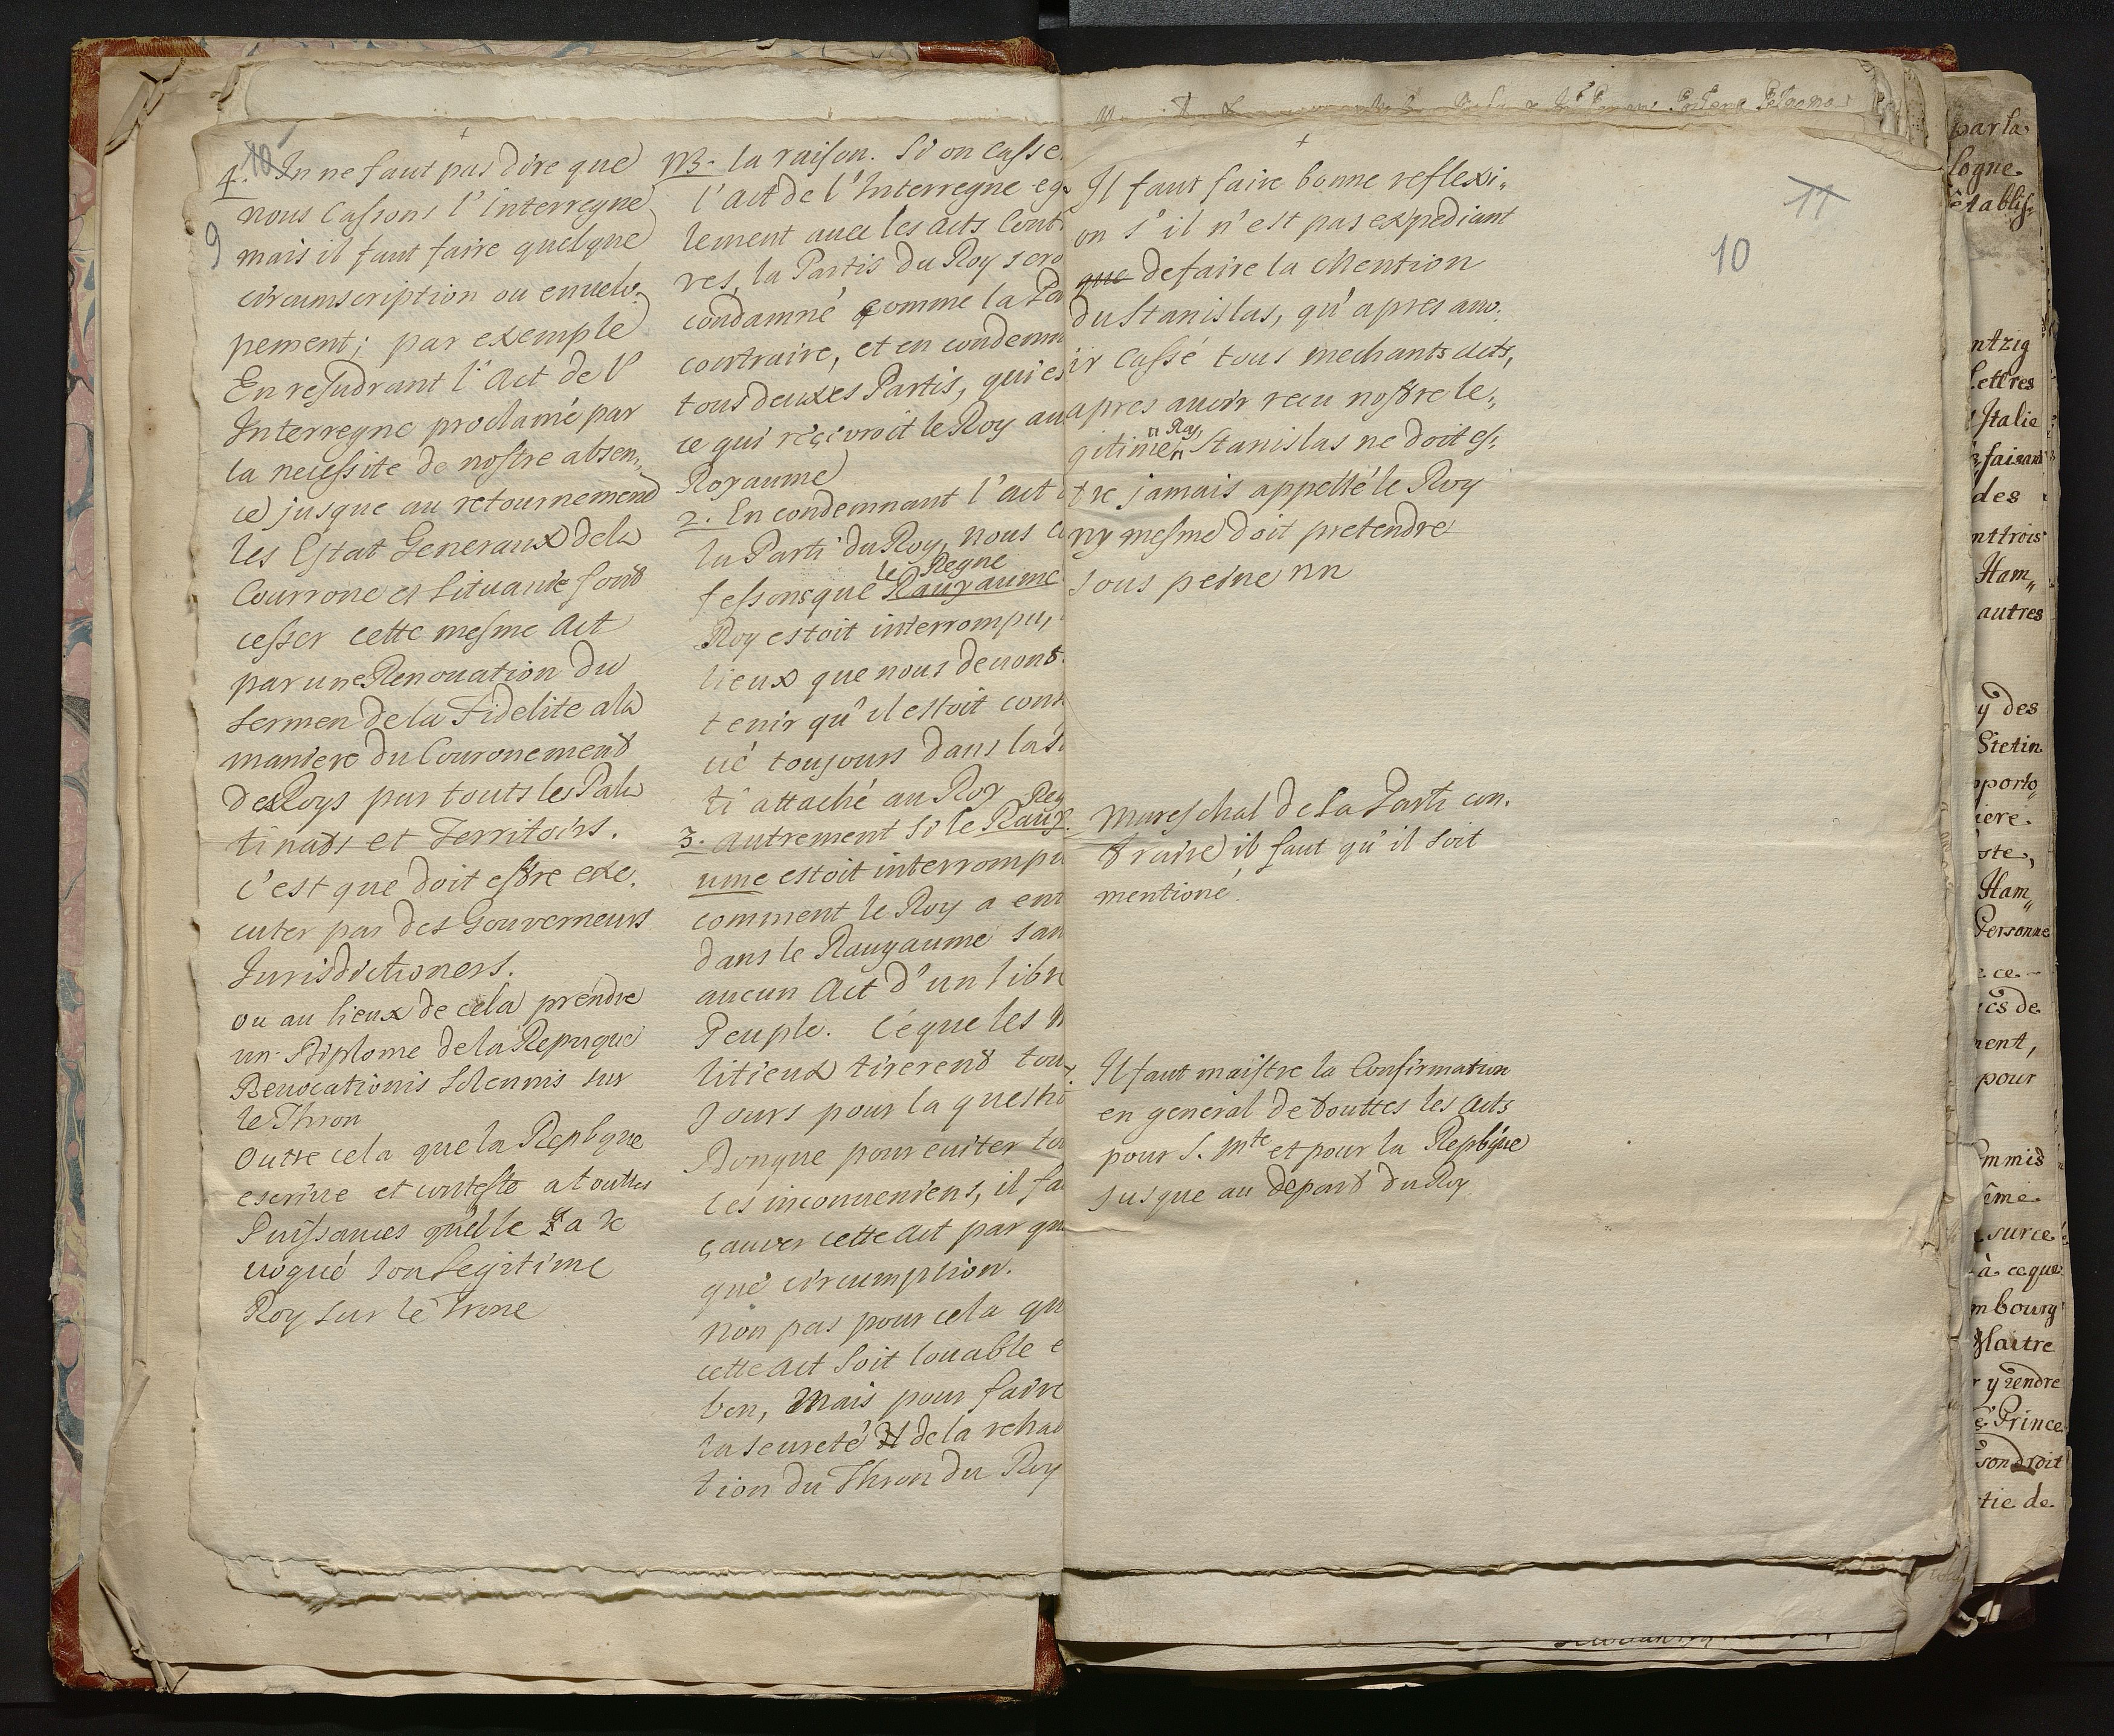 +
10
4. In ne faut pas dire que
nous Cassons l'interregne
9
mais il faut faire quelque
circumscription ou envelo:
pement; par exemple
En resudrant l'Act de l'
Interregne proclamé par
la necessite de nostre absen„
ce jusque au retournemend
les Estat Generaux dela
Courrone et Lituanie font
cesser cette mesme Act
par une Renouation du
Sermen de la Fidelite ala
maniere du Couronement
des Roys par touts les Pala
tinats et Territoirs.
c'est que doit estre exe.
cuter par des Gouverneurs
Jurisdictioners.
ou au lieux de cela prendre
un Diplome dela Repuque
Revocationis Solennis sur
le Thron
Outre cela que la Replque
escrive et conteste a touttes
Puissances quelle a re
uoqué son Legitime
Roy sur le Trone
NB. la raison. Si on Casse
l'act de l'Interregne eg
lement avec les Acts Cont
res, la Partis du Roy sero
condamné comme la Pa
contraire, et en condemn
tous deuxes Partis, qui es
ce qui reçivroit le Roy au
Royaume
2. En condemnant l'act
la Parti du Roy, nous c
le Regne
fessons que Rauyaume
Roy estoit interrompu,
lieux que nous devons
tenir qu'il estoit cont
ué toujours dans la
ti attaché au Roy
Reg
3. autrement si le Rauy
ume estoit interrompu
comment le Roy a ent
dans le Rauyaume san
aucun Act d'un libre
Peuple. Cé que les
litieux tirerend tou
Jours pour la questi
Donque pour euiter to
ces inconueniens, il fa
çauver cette act par qu
que circumption.
non pas pour cela qu
cette act soit louable e
bon, Mais pour faire
la seureté de la rehab
tion du Thron du Roy
+
11
10
Il faut faire bonne reflexi„
on s'il n'est pas expediant
que defaire la Mention
du Stanislas, qu'apres avo:
ir Cassé tous mechants acts,
apres auoir recu nostre le„
Roy,
gitime Stanislas ne doit es:
tre jamais appellé le Roy
ny mesme doit pretendre
sous peine nn
Mareschal de La Parti con.
traire il faut qu'il soit
mentioné.
Il faut maistre la Confirmation
en general de touttes les Acts
pour S. Mte et pour la Replque
jusque au depart du Roy
par la
logne
établis:
ntzig
Lettres
Italie
faisant
des
nttrois
Ham„
autres
y des
Stetin
pporto„
iere.
oste,
Ham„
Personne
ce
cs de
ment,
pour
mmis
éme
surce
à ceque
mbourg
Maitre
r y rendre
Prince
son droit
tie de